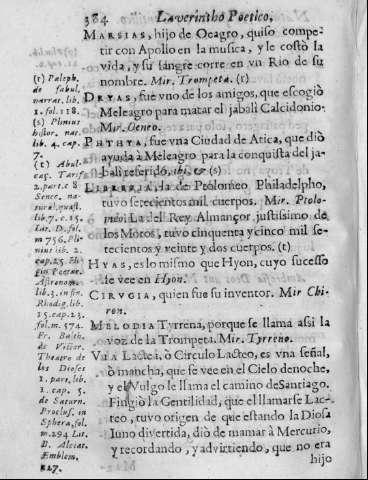 384 Laverintho Poetico,
MARSIAS, hijo de Oeagro, quiso compe-
tir con Apollo en la musica, y le costò la
vida, y su sangre corre en vn Rio de su
nombre. Mir. Trompeta. (r)
DRYAS, fue vno de los amigos, que escogiò
Meleagro para matar el jabali Calcidonio.
Mir. Oenro.
PHTHYA, fue vna Ciudad de Atica, que diò
ayuda à Meleagro para la conquista del ja-
bali referido, ibi, & (s)
LIBRERIA, la de Ptolomeo Philadelpho,
tuvo setecientos mil cuerpos. Mir. Ptolo-
meo. La del Rey Almançor justissimo de
los Moros, tuvo cinquenta y cinco mil se-
tecientos y veinte y dos cuerpos. (t)
HYAS, es lo mismo que Hyon, cuyo sucesso
se vee en Hyon.
CIRVGIA, quien fue su inventor. Mir Chi-
ron.
MELODIA Tyrrena, porque se llama assi la
voz de la Trompeta. Mir. Tyrreno.
VIA Lactea, ò Circulo Lacteo, es vna señal,
ò mancha, que se vee en el Cielo de noche,
y el Vulgo le llama el camino de Santiago.
Fingiò la Gentilidad, que el llamarse Lac-
teo, tuvo origen de que estando la Diosa
Iuno divertida, diò de mamar à Mercurio,
y recordando, y advirtiendo, que no era
hijo
(r) Paleph.
de fabul.
narrat. lib.
1. fol. 118.
(s) Plinius
histor. nat.
lib. 4. cap.
7.
(t) Abul-
cac. Tarif
2. part. c 8
Senec. na-
tural. quæst.
lib. 7. c. 15.
Lat. D. fol.
m 756. Pli-
nius lib. 2.
cap. 25.
Astronom.
lib. 3. in fin.
Rhodig. lib.
15. cap. 23.
fol. m. 574.
Fr. Balth.
de Victor.
Theatro de
los Dioses
1. part. lib.
1. cap. 5.
de Saturn.
Proclus. in
Sphera, fol.
m. 294 Lit.
B. Alciat.
Emblem.
127.